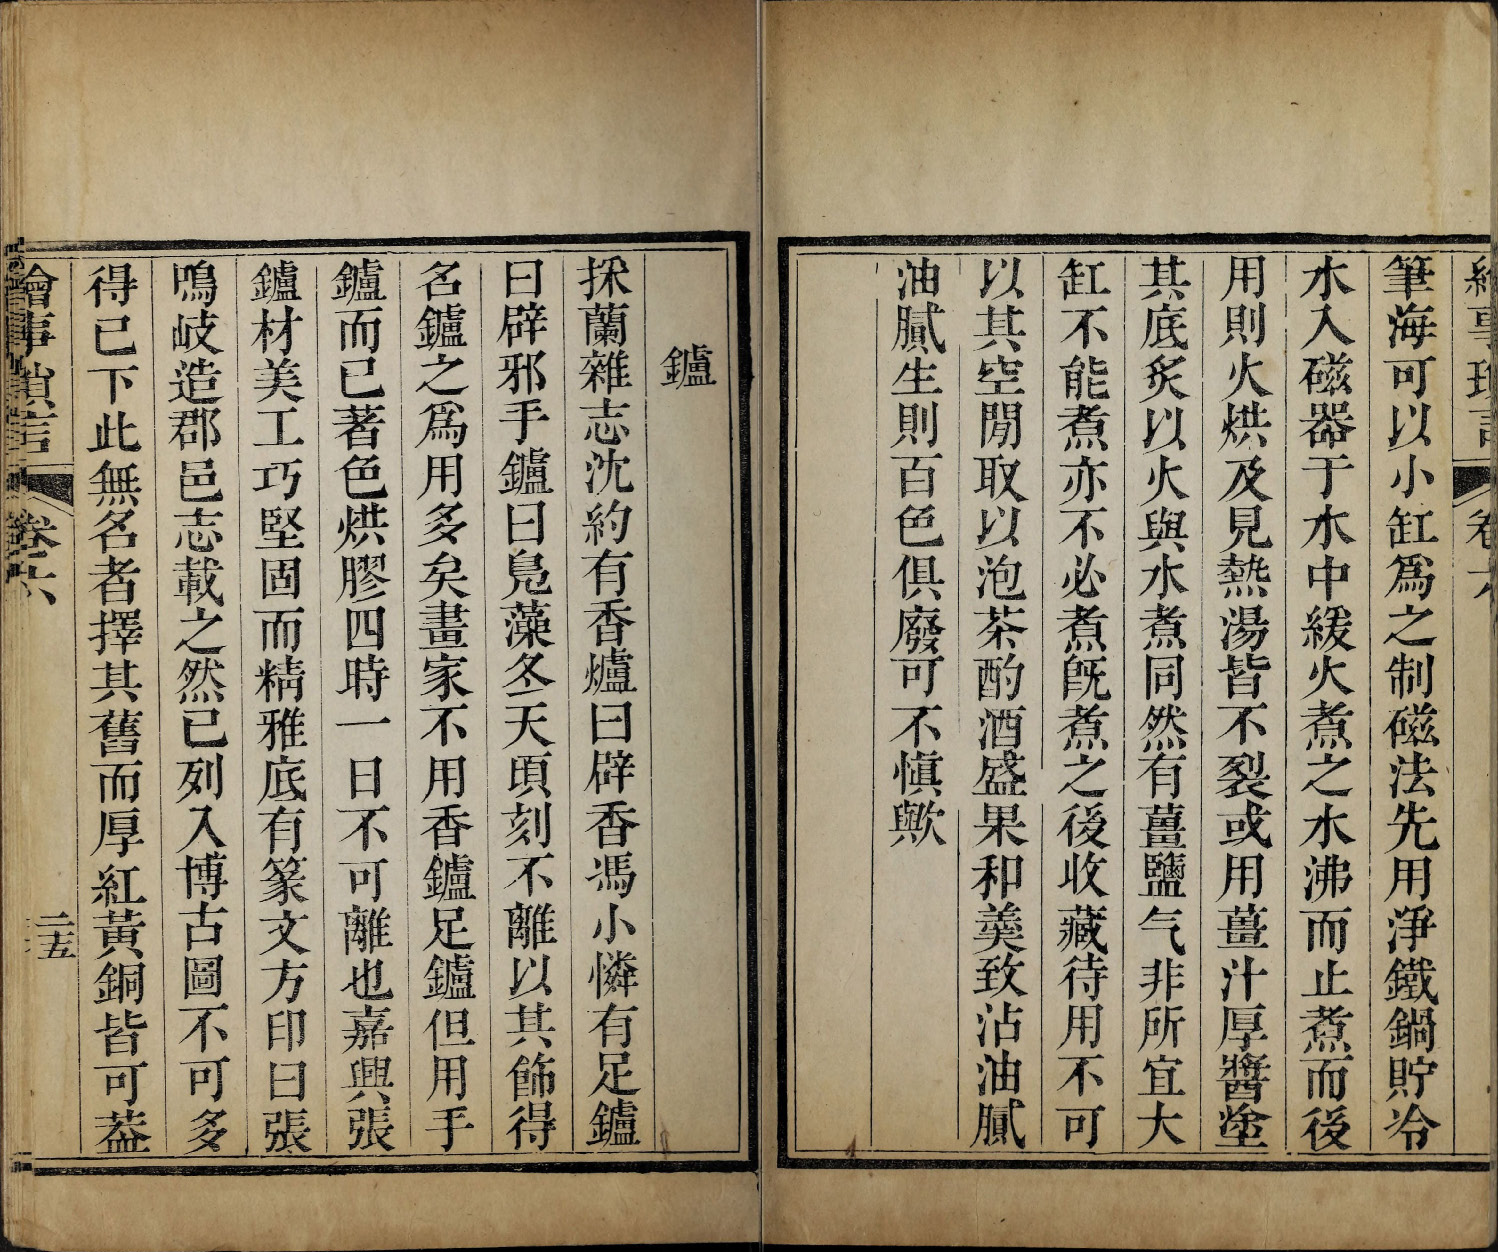 繪事瑣言
卷六
筆海可以小缸爲之制磁法先用淨鐵鍋貯冷
水入磁器于水中緩火煮之水沸而止煮而後
用則火烘及見熱湯皆不裂或用薑汁厚醬塗
其底炙以火與水煮同然有薑鹽气非所宜大
缸不能煮亦不必煮旣煮之後收藏待用不可
以其空閒取以泡茶酌酒盛果和羹致沾油膩
油膩生則百色俱廢可不愼歟
鑪
採蘭雜志沈約有香爐曰辟香馮小憐有足鑪
曰辟邪手鑪曰鳧藻冬天頃刻不離以其飾得
名鑪之爲用多矣畫家不用香鑪足鑪但用手
鑪而已著色烘膠四時一日不可離也嘉興張
鑪材美工巧堅固而精雅底有篆文方印曰張
鳴岐造郡邑志載之然已列入博古圖不可多
得已下此無名者擇其舊而厚紅黃銅皆可葢
繪事瑣言
卷六
二五